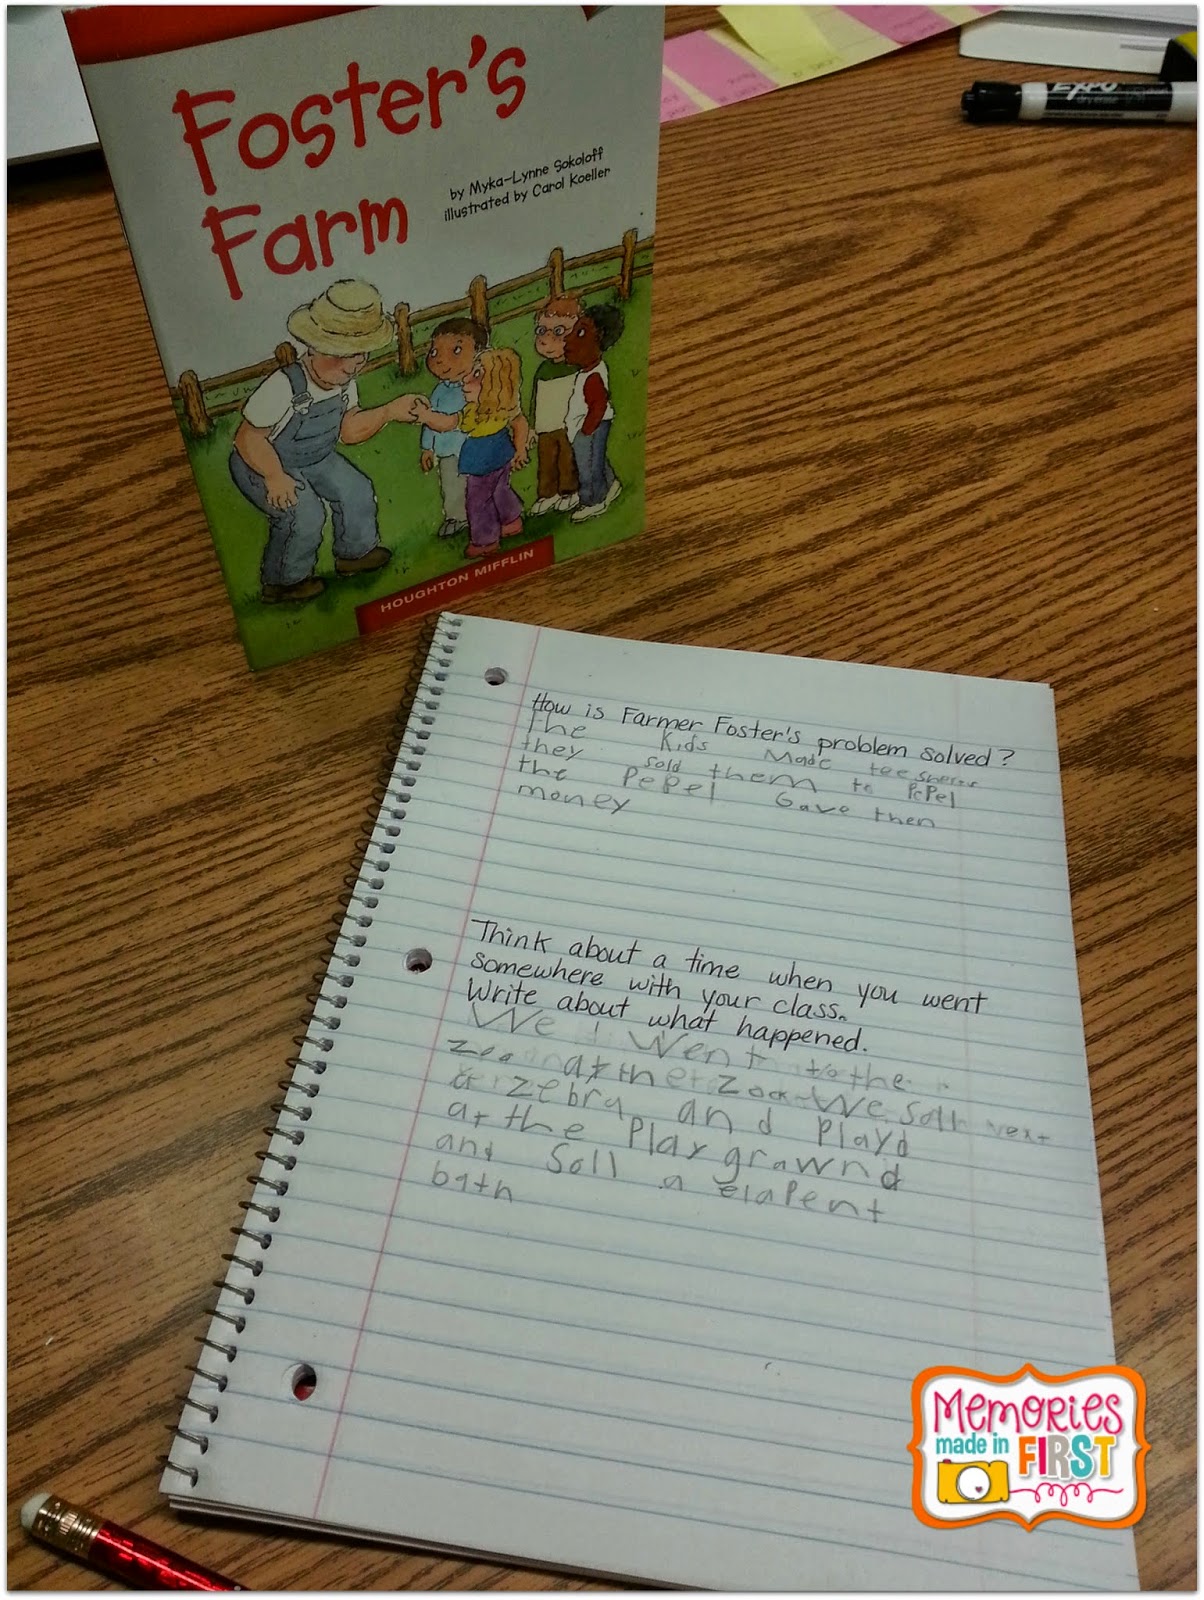 Foster's
Farm
by Myka-Lynne Sokoloff
illustrated by Carol Koeller
HOUGHTON MIFFLIN
EXPO
dry erase
How is Farmer Foster's problem solved?
the Kids Made tee
they sold them to PePel
the PePel Gave then
money
Think about a time when you went
somewhere with your class.
Write about what happened.
We Went to the
zoo at the zoo We soll
a zebra and Playd
at the Play grawnd
and Soll a elapent
bath
MEMORIES
made in FIRST